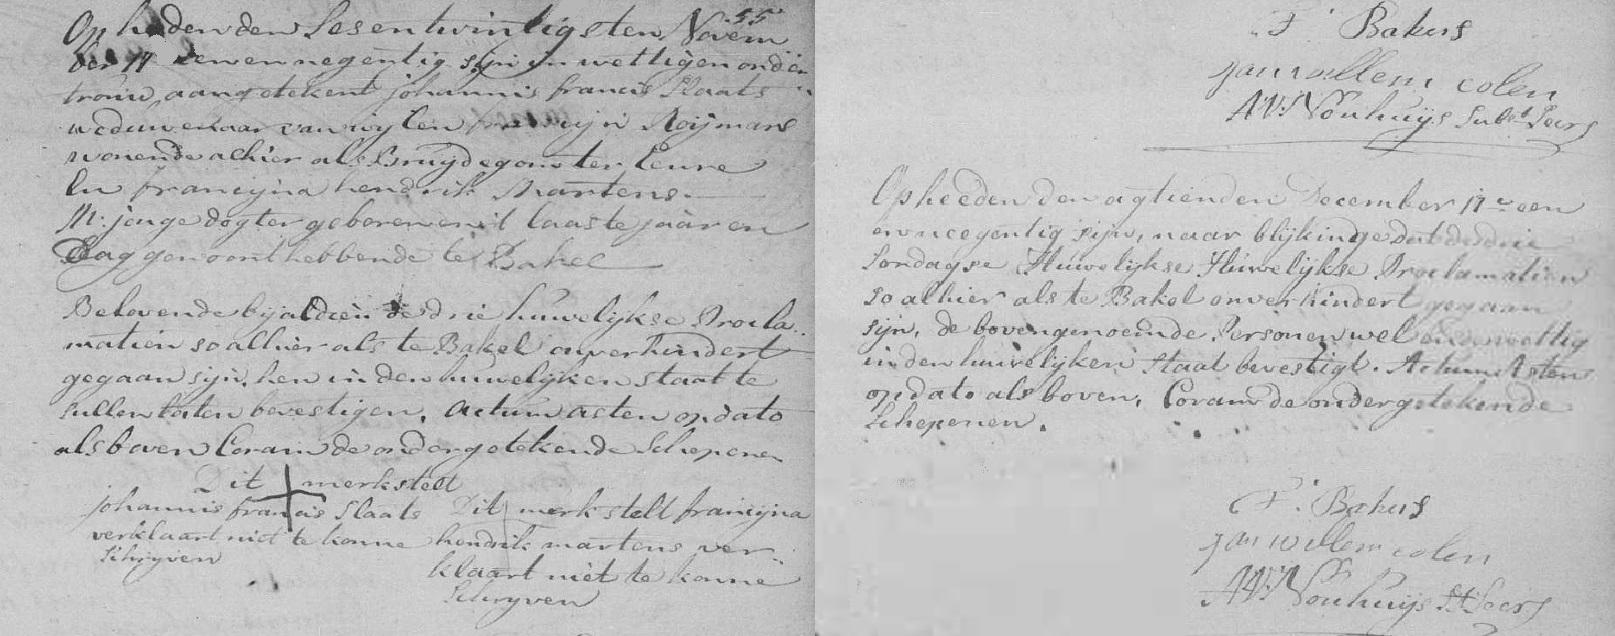 55
Op heden den Sesentwintigsten Novem
ber 17 eenennegentig sijn in wettigen onder
trouw aangetekent johannis francis Slaats
weduwenaar van wijlen Roijmans
wonende alhier als Bruijdegom ter Eenre
En francijna hendrik Martens
M: jonge dogter geboren en 't laaste jaar en
Dag gewoont hebbende te Bakel
Belovende bij aldien de drie huwelijkse Procla
matien so alhier als te Bakel onverhindert
gegaan sijn, hen in den huwelijken staat te
sullen laten bevestigen. Actum Asten op dato
als boven Coram de ondergetekende Schepenen
Dit merk stelt
johannis francis Slaats
verklaart niet te konne
Schryven
Dit merk stelt francijna
hendrik martens ver
klaart niet te konne
Schryven
F. Bakers
jan willem colen
A.W. Vouhuijs Subst Secrs
Op heeden den agtienden December 17 een
en neegentig sijn, naar blijkinge dat de drie
Sondagse Huwelijkse Huwelijkse Proclamatien
so alhier als te Bakel onverhindert gegaan
sijn, de bovengenoemde Personen wel en wettig
in den huwelijken Staat bevestigt. Actum Asten
op dato als boven, Coram de ondergetekende
Schepenen.
F. Bakers
jan willem colen
A.W. Vouhuijs St Secrs